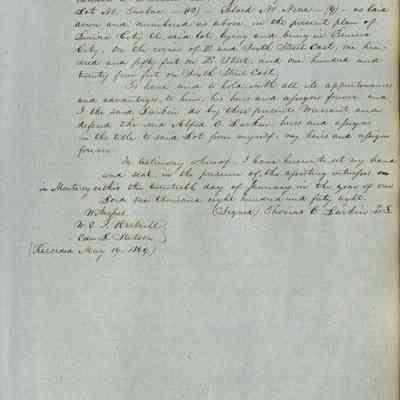 Lot No. Twelve — (12) — Block No. Nine — (9) — as laid
down and numbered as above, in the present plan of
Benicia City, the said lot lying and being in Benicia
City, on the corner of D and Tenth Street East, one hun-
dred and fifty feet on D Street, and one hundred and
twenty five feet on Tenth Street East,
To have and to hold with all its appurtenances
and advantages, to him, his heirs and assigns forever and
I the said Larkin do by these presents Warrant and
defend the said Alfred O. Larkin heirs and assigns
in the title to said Lot from myself, my heirs and assigns
forever.
In testimony whereof, I have hereunto set my hand
and seal, in the presence of the subscribing witnesses
in Monterey this the twentieth day of January in the year of our
Lord one thousand eight hundred and forty eight.
Witnesses (Signed) Thomas O. Larkin L.S.
W. S.
Edw. L. Stetson
(Recorded May 19. 1849)